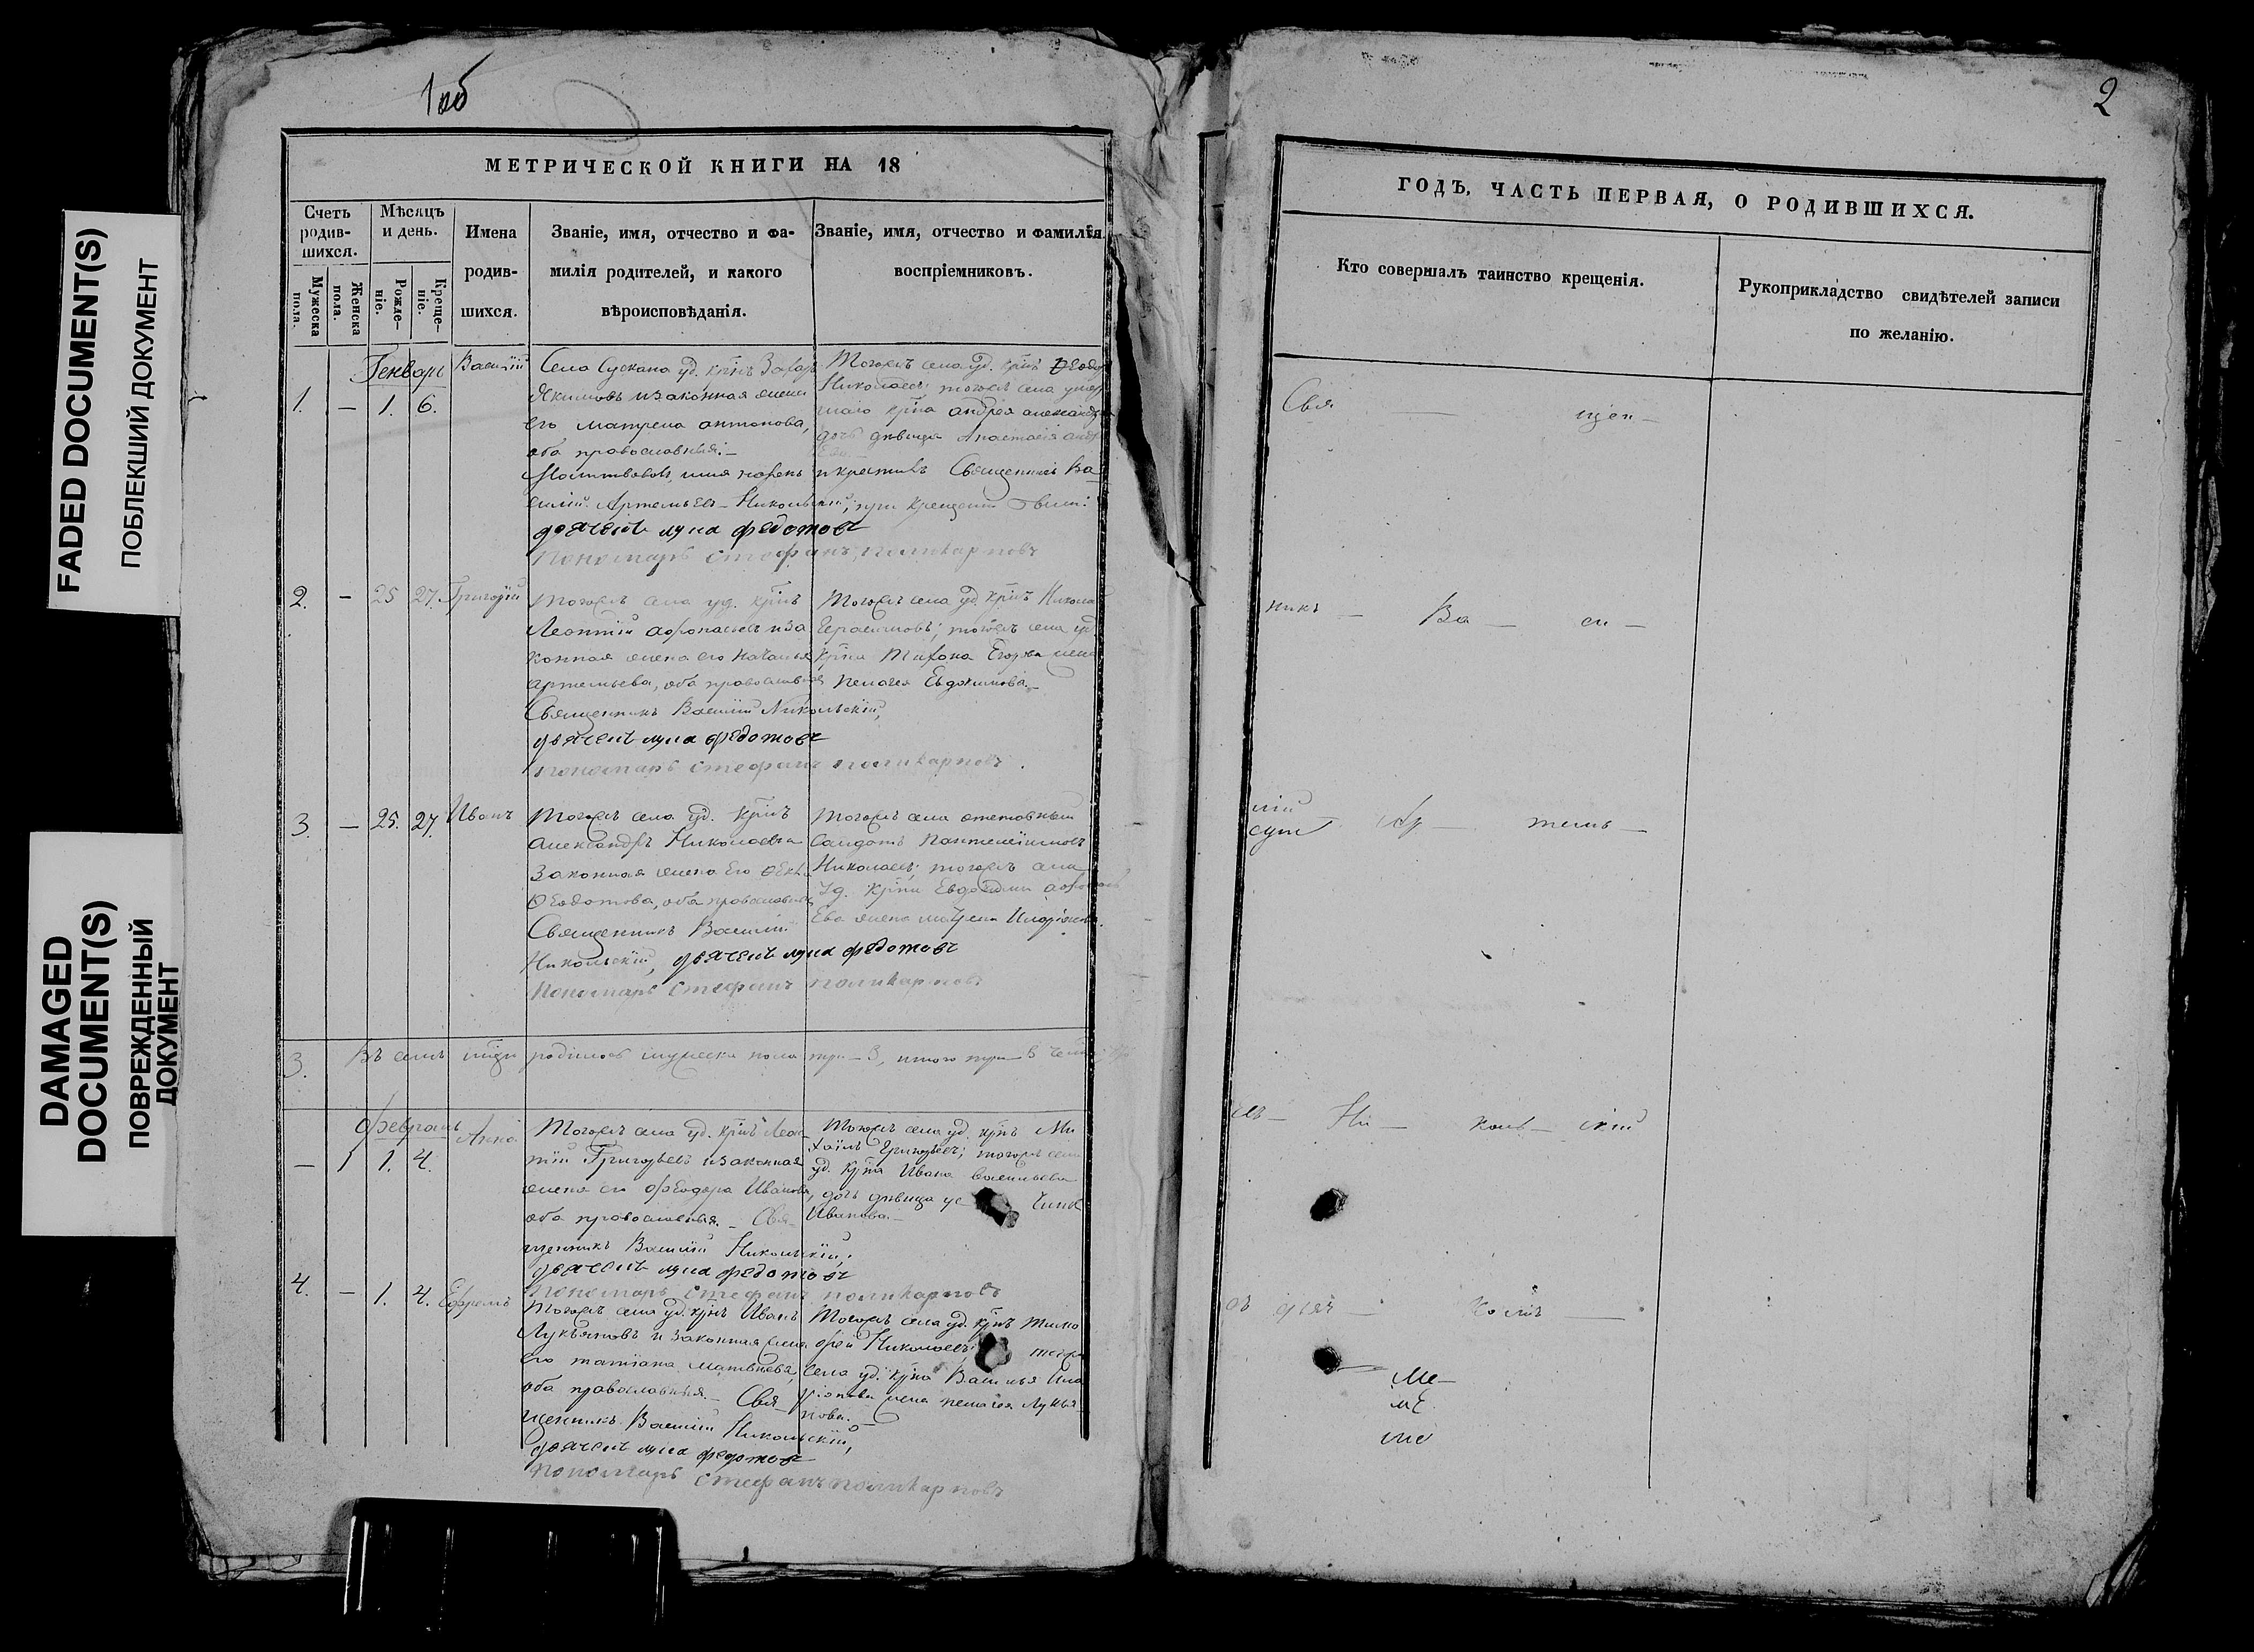 FADED DOCUMENT(S)
ПОБЛЕКШИЙ ДОКУМЕНТ
DAMAGED
DOCUMENT(S)
ПОВРЕЖДЕННЫЙ
ДОКУМЕНТ
1об
МЕТРИЧЕСКОЙ КНИГИ НА 18
Счетъ родив-шихся.
Мѣсяцъ и день.
Имена родив-шихся.
Званіе, имя, отчество и фа-
милія родителей, и какого
вѣроисповѣданія.
Званіе, имя, отчество и фамилія
воспріемниковъ.
Мужеска пола.
Женска пола.
Рожде-ніе.
Креще-ніе.
Генварь
1. — 1. 6.
Василій
Села Сускана уд. крнъ Захаръ
Якимовъ и законная жена
его Матрена антонова,
оба православныя. —
Тогожъ села уд. крнъ Ѳеодоръ
Николаевъ; тогожъ села
андрея
дочь дѣвица Анастасія
Молитвовалъ, имя нарекъ и крестилъ Священникъ Ва-
силій Артемьевъ Никольскій; при крещеніи были:
дьячекъ лука федотовъ
пономарь стефанъ поликарповъ
2. — 25 27. Григорій
Тогожъ села уд. крнъ
Леонтій афонасьевъ и за
конная жена его Наталья
артемьева, оба православныя
Тогожъ села уд. крнъ Никола
Герасимовъ; тогожъ села уд.
крна Тихона Егорова жена
Пелагея Евдокимова. —
Священникъ Василій Никольскій,
дьячекъ лука федотовъ
пономарь стефанъ поликарповъ.
3. — 25. 27. Иванъ
Тогожъ села уд. крнъ
Александръ Николаевъ и
законная жена его Ѳекла
Ѳеодотова, оба православныя
Тогожъ села отставный
Солдатъ Пантелеймонъ
Николаевъ; тогожъ села
уд. крна
жена матрена
Священникъ Василій
Никольскій, дьячекъ лука федотовъ
пономарь стефанъ поликарповъ
3. Въ семъ родилось мужеска пола три — 3, итого три — 3
февраль
— 1 1. 4.
Анна
Тогожъ села уд. крнъ Леон-
тій Григорьевъ и законная
жена его Ѳеодора Иванова,
оба православныя. — Свя-
Тогожъ села уд. крнъ Ми-
хаилъ Григорьевъ; тогожъ села
уд. крна Ивана васильева
дочь дѣвица
Иванова. —
щенникъ Василій Никольскій,
дьячекъ лука федотовъ
пономарь стефанъ поликарповъ
4. — 1. 4. Ефремъ
Тогожъ села уд. крнъ Иванъ
Лукьяновъ и законная жена
его татіана матвѣева,
оба православныя. — Свя-
Тогожъ села уд. крнъ Тимо
фей Николаевъ;
села уд. крна Василья Ила
ріонова жена пелагея Лукья-
нова. —
щенникъ Василій Никольскій,
дьячекъ лука федотовъ
пономарь стефанъ поликарповъ
2
ГОДЪ, ЧАСТЬ ПЕРВАЯ, О РОДИВШИХСЯ.
Кто совершалъ таинство крещенія.
Рукоприкладство свидѣтелей записи
по желанію.
Свя — щен —
никъ — Ва — си —
лій Ар — темь —
евъ — Ни — коль — скій